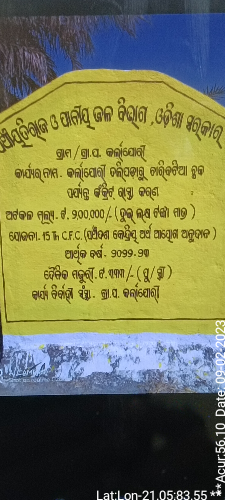 ପଞ୍ଚାୟତିରାଜ ଓ ପାନୀୟ ଜଳ ବିଭାଗ, ଓଡ଼ିଶା ସରକାର
ଗ୍ରାମ / ଗ୍ରା.ପ. କର୍ଲାଘୋରୀ
କାର୍ଯ୍ୟର ନାମ - କର୍ଲାଘୋରୀ
ପର୍ଯ୍ୟନ୍ତ କଂକ୍ରିଟ୍ ରାସ୍ତା କରଣ
ଅଟକଳ ମୂଲ୍ୟ - ଟ. ୨,୦୦,୦୦୦/- (ଦୁଇ ଲକ୍ଷ ଟଙ୍କା ମାତ୍ର)
ଯୋଜନା - 15 Th C.F.C. (ପଞ୍ଚଦଶ କେନ୍ଦ୍ରିୟ ଅର୍ଥ ଆୟୋଗ ଅନୁଦାନ)
ଆର୍ଥିକ ବର୍ଷ - ୨୦୨୨-୨୩
ଦୈନିକ ମଜୁରୀ - ଟ. /- (ପୁ/ସ୍ତ୍ରୀ)
କାର୍ଯ୍ୟ ନିର୍ବାହୀ ସଂସ୍ଥା - ଗ୍ରା.ପ. କର୍ଲାଘୋରୀ
Lat:Lon-21.05:83.55
**Acur:56.10 Date: 09-02-2023